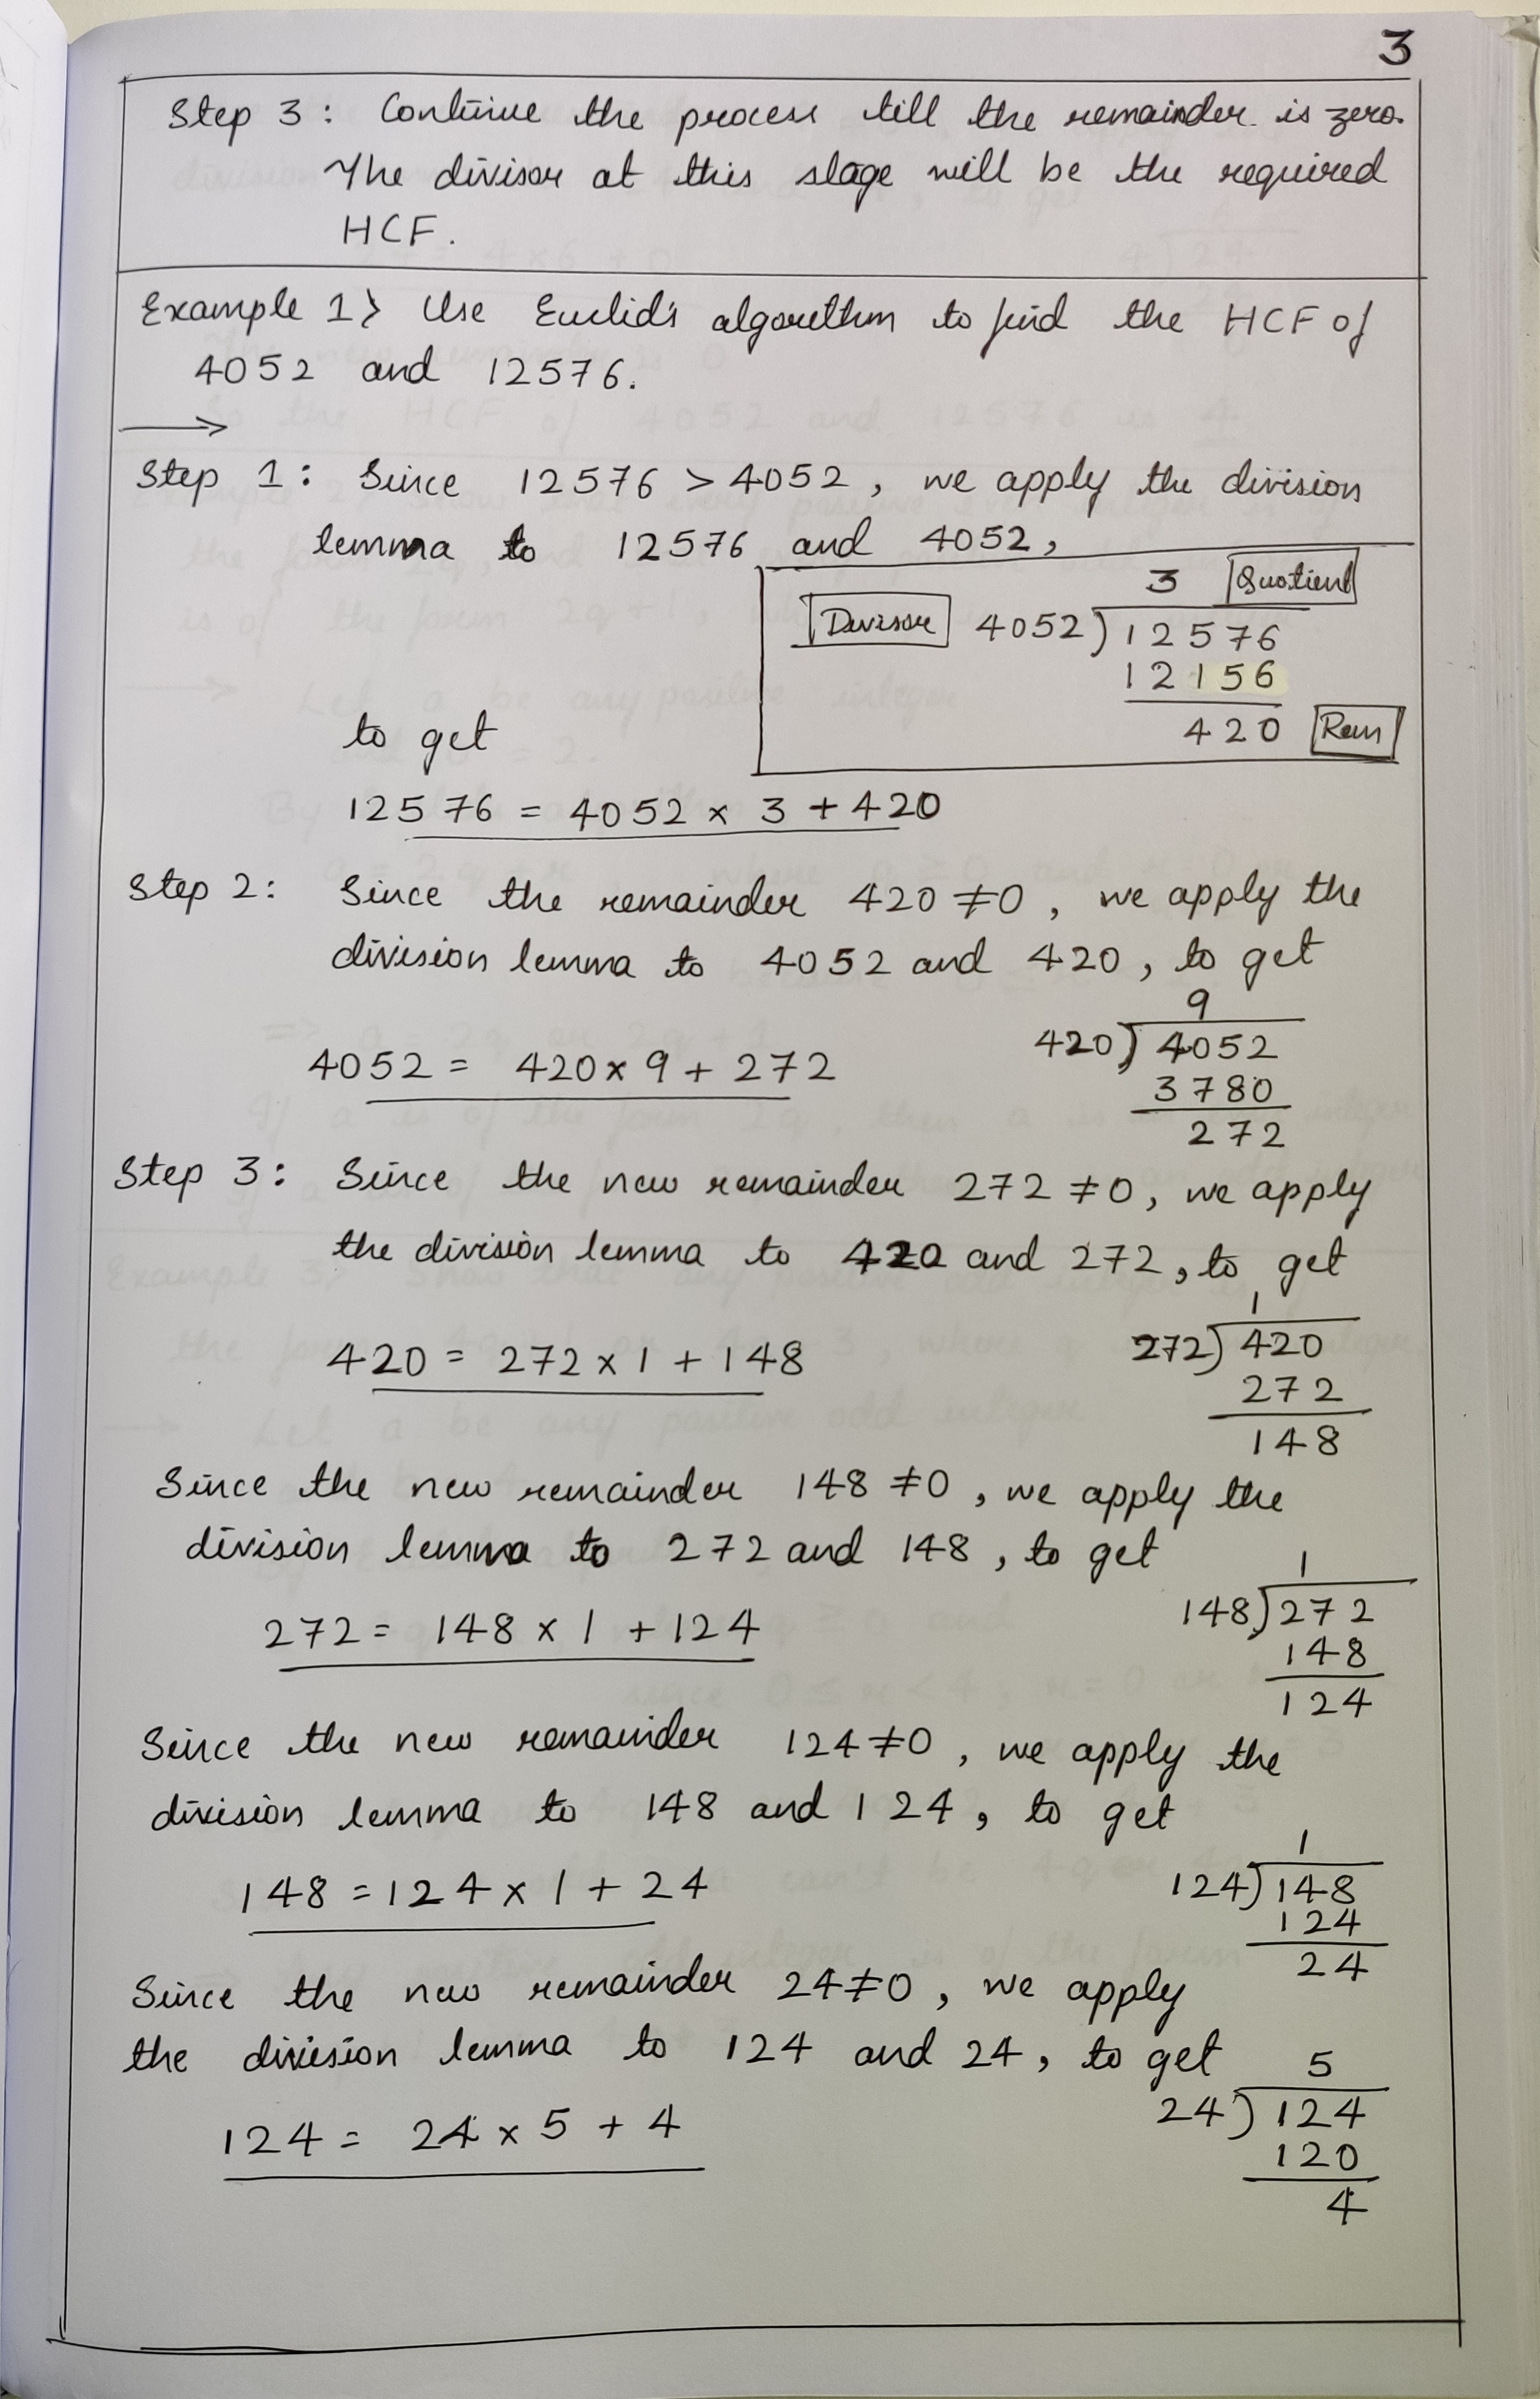 3
Step 3 : Continue the process till the remainder is zero.
The divisor at this stage will be the required
HCF.
Example 1> Use Euclid's algorithm to find the HCF of
4052 and 12576.
→
Step 1 : Since 12576 > 4052, we apply the division
lemma to 12576 and 4052,
3 Quotient
Divisor 4052) 12576
12156
420 Rem
to get
12576 = 4052 × 3 + 420
Step 2 : Since the remainder 420 ≠ 0, we apply the
division lemma to 4052 and 420, to get
9
420) 4052
4052 = 420 × 9 + 272
3780
272
Step 3 : Since the new remainder 272 ≠ 0, we apply
the division lemma to 420 and 272, to get
1
272) 420
420 = 272 × 1 + 148
272
148
Since the new remainder 148 ≠ 0, we apply the
division lemma to 272 and 148, to get
1
148) 272
272 = 148 × 1 + 124
148
124
Since the new remainder 124 ≠ 0, we apply the
division lemma to 148 and 124, to get
1
124) 148
148 = 124 × 1 + 24
124
24
Since the new remainder 24 ≠ 0, we apply
the division lemma to 124 and 24, to get
5
24) 124
124 = 24 × 5 + 4
120
4